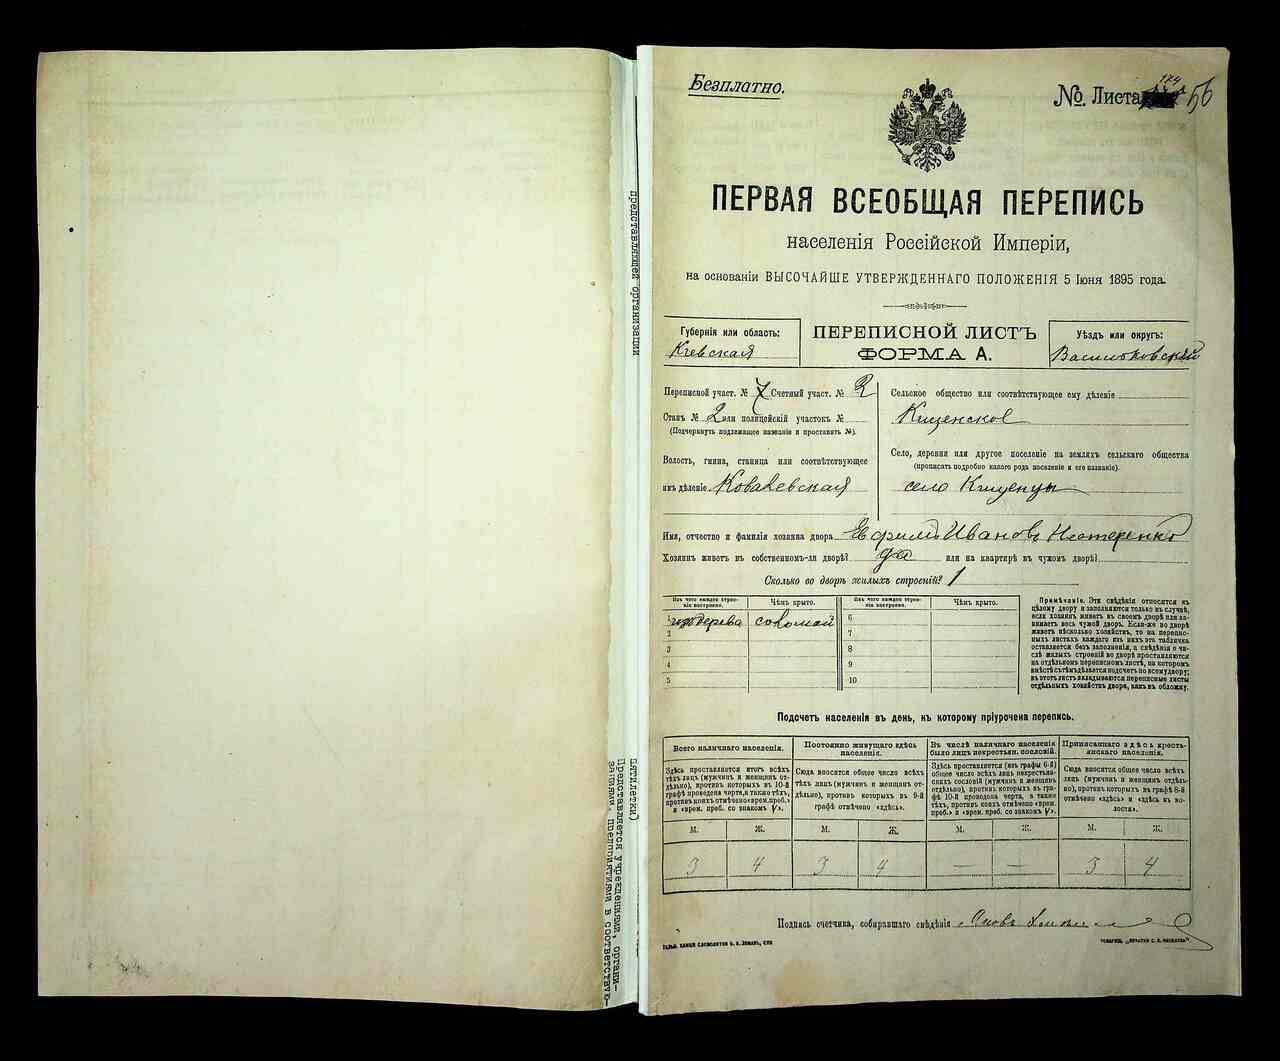 Безплатно.
№. Листа 56
174
ПЕРВАЯ ВСЕОБЩАЯ ПЕРЕПИСЬ
населенія Россійской Имперіи,
на основаніи ВЫСОЧАЙШЕ УТВЕРЖДЕННАГО ПОЛОЖЕНІЯ 5 Іюня 1895 года.
Губернія или область:
Кіевская
ПЕРЕПИСНОЙ ЛИСТЪ
ФОРМА А.
Уѣздъ или округъ:
Васильковскій
Переписной участ. № 7 Счетный участ. № 2
Станъ № 2 или полицейскій участокъ №
(Подчеркнуть подлежащее названіе и проставить №).
Волость, гмина, станица или соотвѣтствующее
имъ дѣленіе Ковалевская
Сельское общество или соотвѣтствующее ему дѣленіе
Кищенское
Село, деревня или другое поселеніе на земляхъ сельскаго общества
(прописать подробно какого рода поселеніе и его названіе).
село Кищенцы
Имя, отчество и фамилія хозяина двора Ефримъ Ивановъ Нестеренко
Хозяинъ живетъ въ собственномъ-ли дворѣ? да или на квартирѣ въ чужомъ дворѣ?
Сколько во дворѣ жилыхъ строеній? 1
Изъ чего каждое строеніе построено.
Чѣмъ крыто.
Изъ чего каждое строеніе построено.
Чѣмъ крыто.
1 изъ дерева соломой
2
3
4
5
6
7
8
9
10
Примѣчаніе. Эти свѣдѣнія относятся къ
цѣлому двору и заполняются только въ случаѣ,
если хозяинъ живетъ въ своемъ дворѣ или занимаетъ
весь чужой дворъ. Если-же во дворѣ
живетъ нѣсколько хозяйствъ, то на переписныхъ
листахъ каждаго изъ нихъ эта табличка
оставляется безъ заполненія, а свѣдѣнія о числѣ
жилыхъ строеній во дворѣ проставляются
на отдѣльномъ переписномъ листѣ, на которомъ
вмѣстѣ съ тѣмъ дѣлается подсчетъ по всему двору;
въ этотъ листъ вкладываются переписные листы
отдѣльныхъ хозяйствъ двора, какъ въ обложку.
Подсчетъ населенія въ день, къ которому пріурочена перепись.
Всего наличнаго населенія.
Постоянно живущаго здѣсь населенія.
Въ числѣ наличнаго населенія было лицъ некрестьян. сословій.
Приписаннаго здѣсь крестьянскаго населенія.
Здѣсь проставляется итогъ всѣхъ
тѣхъ лицъ (мужчинъ и женщинъ отдѣльно),
противъ которыхъ въ 10-й
графѣ проведена черта, а также тѣхъ,
противъ коихъ отмѣчено «врем. преб.»
и «врем. преб. со знакомъ V».
Сюда вносится общее число всѣхъ
тѣхъ лицъ (мужчинъ и женщинъ отдѣльно),
противъ которыхъ въ 9-й
графѣ отмѣчено «здѣсь».
Здѣсь проставляется (изъ графы 6-й)
общее число всѣхъ лицъ некрестьянскихъ
сословій (мужчинъ и женщинъ
отдѣльно), противъ которыхъ въ графѣ
10-й проведена черта, а также
тѣхъ, противъ коихъ отмѣчено «врем.
преб.» и «врем. преб. со знакомъ V».
Сюда вносится общее число всѣхъ
лицъ (мужчинъ и женщинъ отдѣльно),
противъ которыхъ въ графѣ 8-й
отмѣчено «здѣсь» и «здѣсь къ волости».
М. Ж. М. Ж. М. Ж. М. Ж.
3 4 3 4 — — 3 4
Подпись счетчика, собиравшаго свѣдѣнія
представляющей организации
пятилетки)
Представляется учреждениями, органи-
зациями, предприятиями в соответствую-